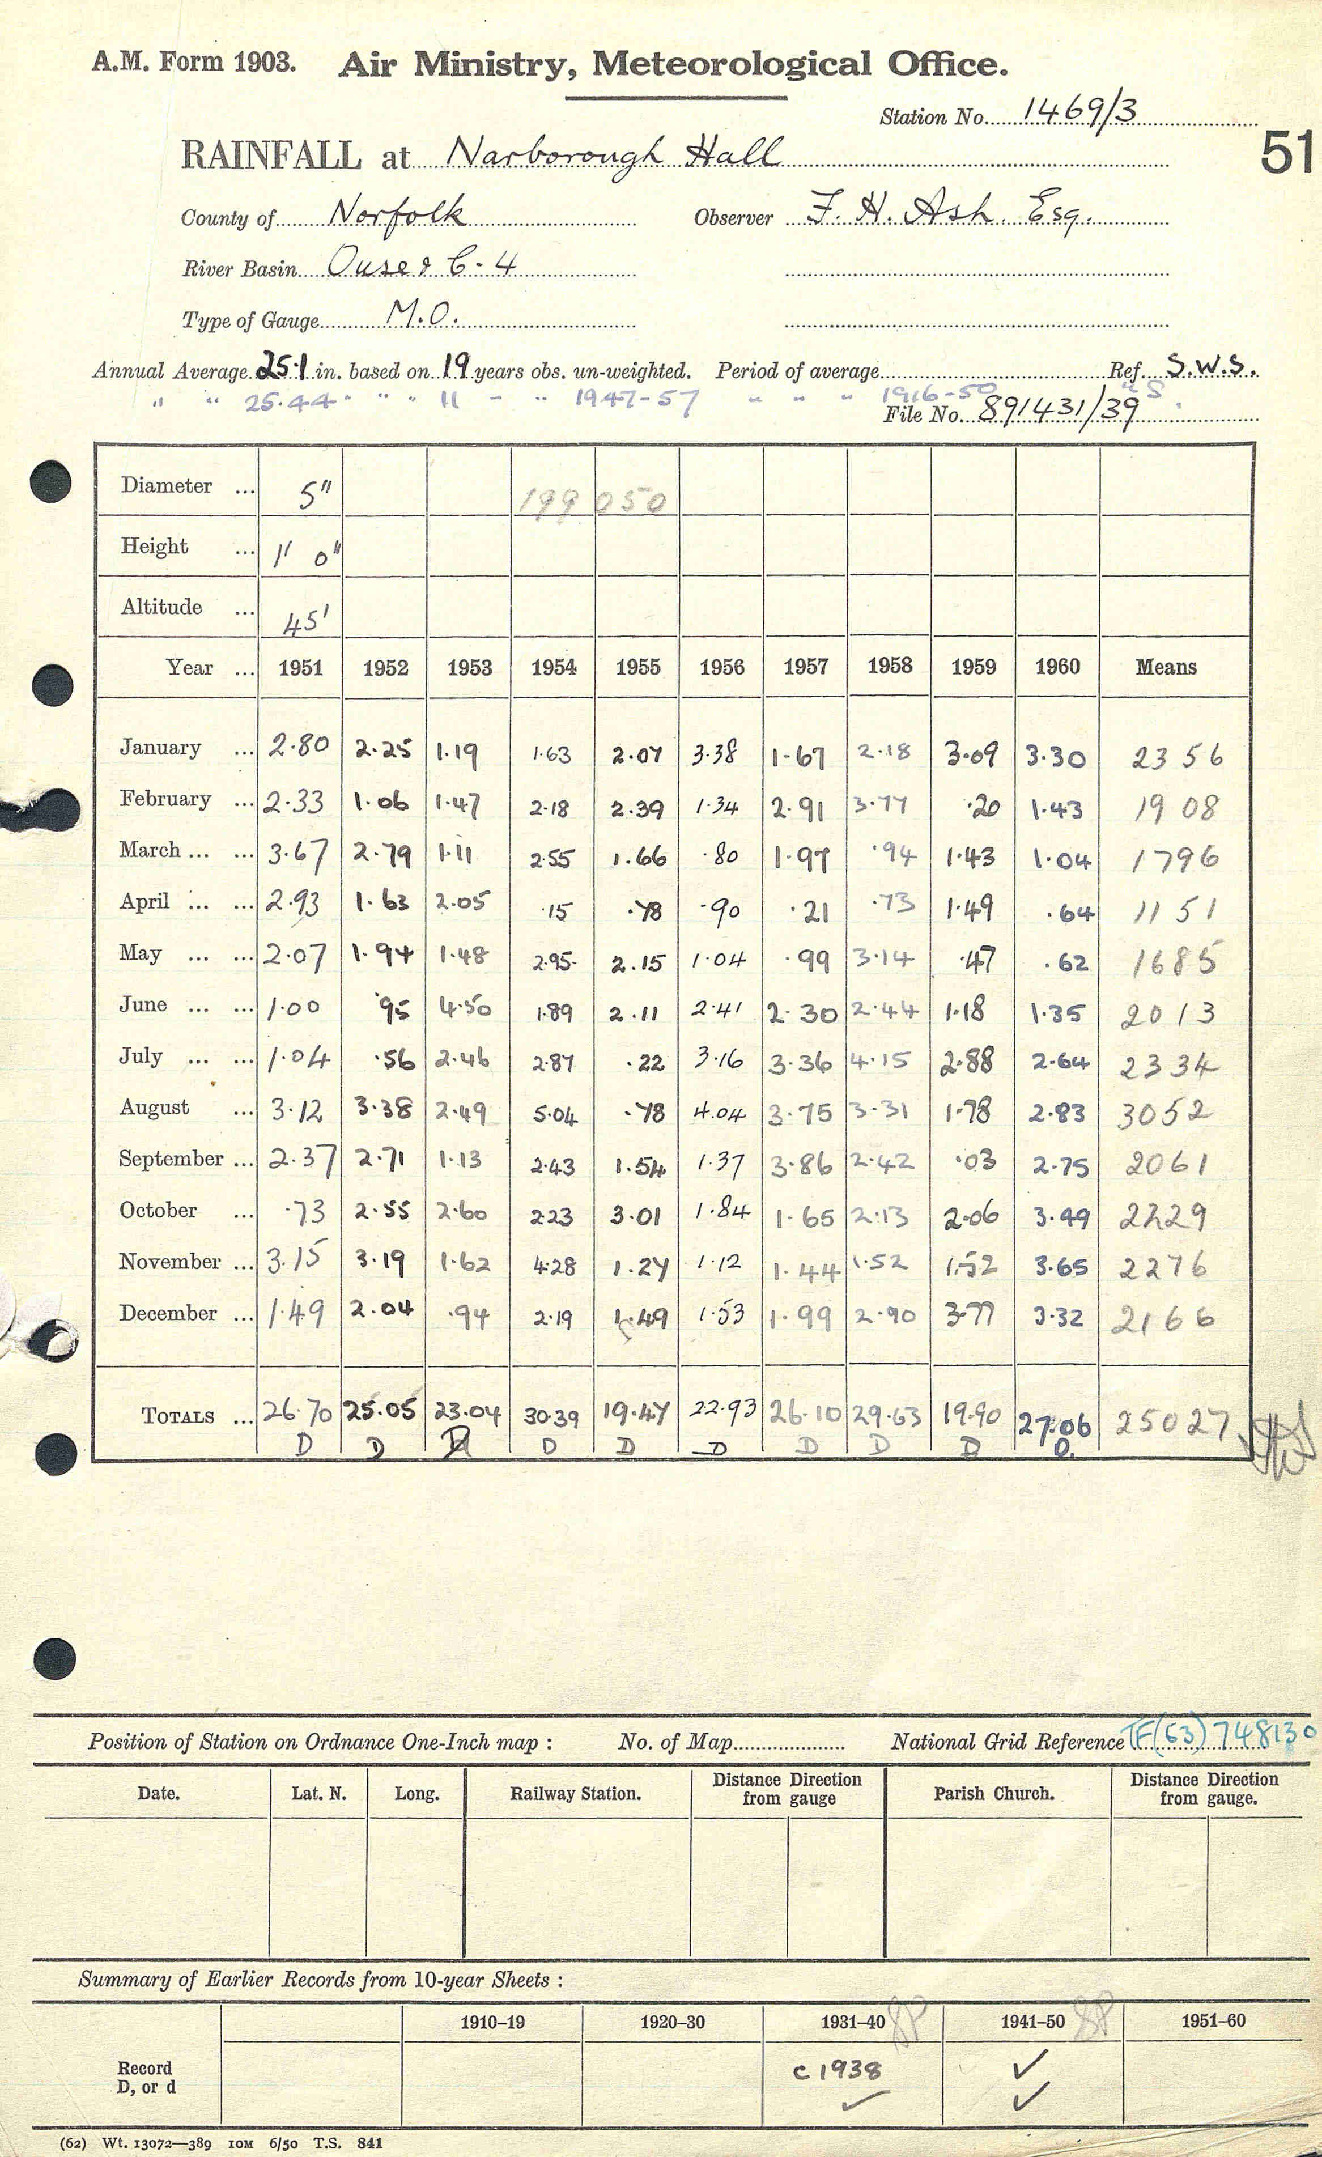 A.M. Form 1903. Air Ministry, Meteorological Office.
Station No. 1469/3
51
RAINFALL at Narborough Hall
County of Norfolk Observer F. H. Ash. Esq.
River Basin Ouse & C - 4
Type of Gauge M.O.
Annual Average 25.1 in. based on 19 years obs. un-weighted. Period of average Ref. S.W.S.
" " 25.44 " " " 11 " " 1947-57 " " " 1916-50 " S.
File No. 891431/39
Diameter ... 5" 199 050
Height ... 1' 0"
Altitude ... 45'
Year ... 1951 1952 1953 1954 1955 1956 1957 1958 1959 1960 Means
January ... 2.80 2.25 1.19 1.63 2.07 3.38 1.67 2.18 3.09 3.30 23 56
February ... 2.33 1.06 1.47 2.18 2.39 1.34 2.91 3.77 .20 1.43 19 08
March ... ... 3.67 2.79 1.11 2.55 1.66 .80 1.97 .94 1.43 1.04 1796
April ... ... 2.93 1.63 2.05 .15 .78 .90 .21 .73 1.49 .64 11 51
May ... ... 2.07 1.94 1.48 2.95 2.15 1.04 .99 3.14 .47 .62 1685
June ... ... 1.00 .95 4.50 1.89 2.11 2.41 2.30 2.44 1.18 1.35 2013
July ... ... 1.04 .56 2.46 2.87 .22 3.16 3.36 4.15 2.88 2.64 2334
August ... 3.12 3.38 2.49 5.04 .78 4.04 3.75 3.31 1.78 2.83 3052
September ... 2.37 2.71 1.13 2.43 1.54 1.37 3.86 2.42 .03 2.75 2061
October ... .73 2.55 2.60 2.23 3.01 1.84 1.65 2.13 2.06 3.49 2229
November ... 3.15 3.19 1.62 4.28 1.27 1.12 1.44 1.52 1.52 3.65 2276
December ... 1.49 2.04 .94 2.19 1.49 1.53 1.99 2.90 3.77 3.32 2166
TOTALS ... 26.70 25.05 23.04 30.39 19.47 22.93 26.10 29.63 19.90 27.06 25027
D D D D D D D D D D.
Position of Station on Ordnance One-Inch map : No. of Map National Grid Reference TF(53) 748130
Date. Lat. N. Long. Railway Station. Distance Direction from gauge Parish Church. Distance Direction from gauge.
Summary of Earlier Records from 10-year Sheets :
1910–19 1920–30 1931–40 1941–50 1951–60
Record c 1938 ✓
D, or d ✓ ✓
(62) Wt. 13072—389 10M 6/50 T.S. 841